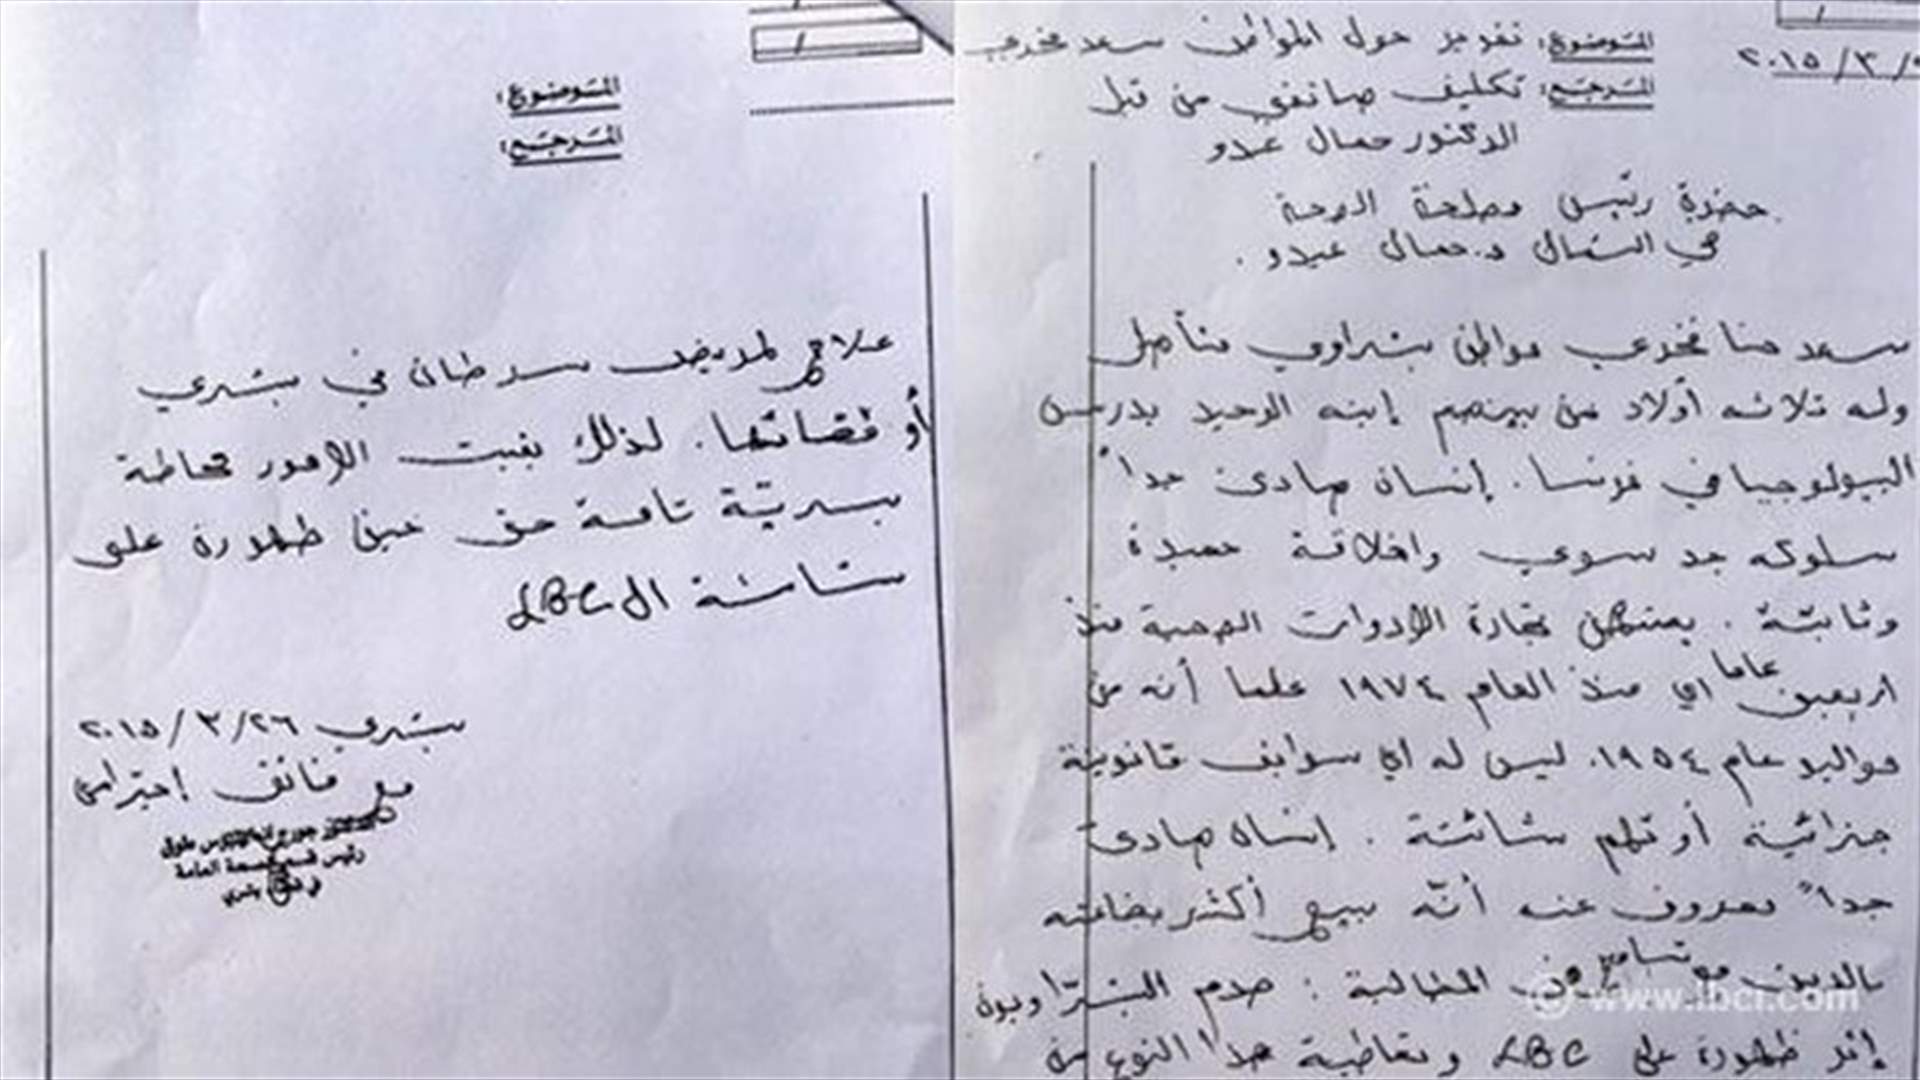 الموضوع: تقرير حول المواطن سعد فخري
٢٠١٥/٣/
المرجع: تكليف هاتفي من قبل
الدكتور جمال عبدو
حضرة رئيس مصلحة الصحة
في الشمال د. جمال عبدو.
سعد حنا فخري مواطن بشراوي متأهل
وله ثلاثه أولاد من بينهم إبنه الوحيد يدرس
البيولوجيا في فرنسا. إنسان هادئ جداً
سلوكه جد سوي واخلاقة حميدة
وثابتة. يمتهن تجارة الادوات الصحية منذ
اربعين عاما اي منذ العام ١٩٧٤ علما أنه من
مواليد عام ١٩٥٤. ليس له اي سوابق قانونية
جزائية أو تهم شائنة. إنسان هادئ
جداً معروف عنه أنّه يبيع أكثر بضاعته
بالدين مع تسامح في المطالبة: صدم البشراويون
إثر ظهورة على LBC وتعاطية هذا النوع من
© www.lbci.com
الموضوع:
المرجع:
علاج لمريض سرطان في بشري
أو قضائها. لذلك بقيت الامور محاطة
بسريّة تامة حتى حين ظهورة على
شاشة ال LBC
بشري ٢٠١٥/٣/٢٦
مع فائق إحترامي
الدكتور جورج طوق
رئيس قسم الصحة العامة
في بشري